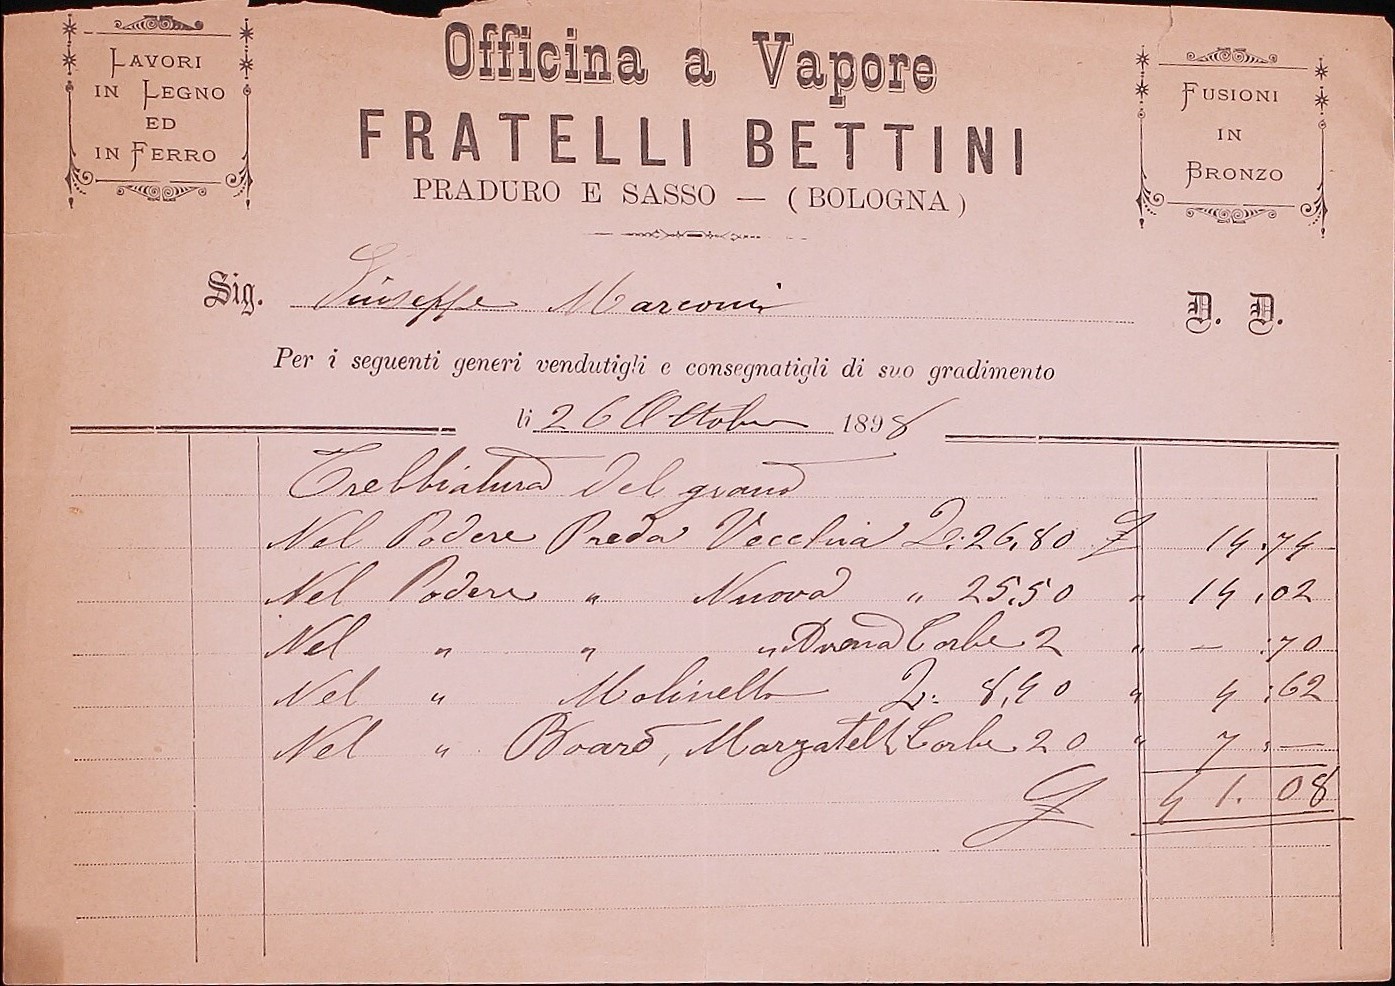 Lavori
in Legno
ed
in Ferro
Officina a Vapore
FRATELLI BETTINI
PRADURO E SASSO — (BOLOGNA)
Fusioni
in
Bronzo
Sig. Giuseppe Marconi D. D.
Per i seguenti generi vendutigli e consegnatigli di suo gradimento
li 26 Ottobre 1898
Trebbiatura del grano
Nel Podere Preda Vecchia Q: 26,80 £ 14:74
Nel Podere " Nuova " 25,50 " 14,02
Nel " " " Avena Corbe 2 " — :70
Nel " Molinello Q: 8,40 " 4:62
Nel " Boaro, Marzatelli Corbe 20 " 7:—
£ 41.08